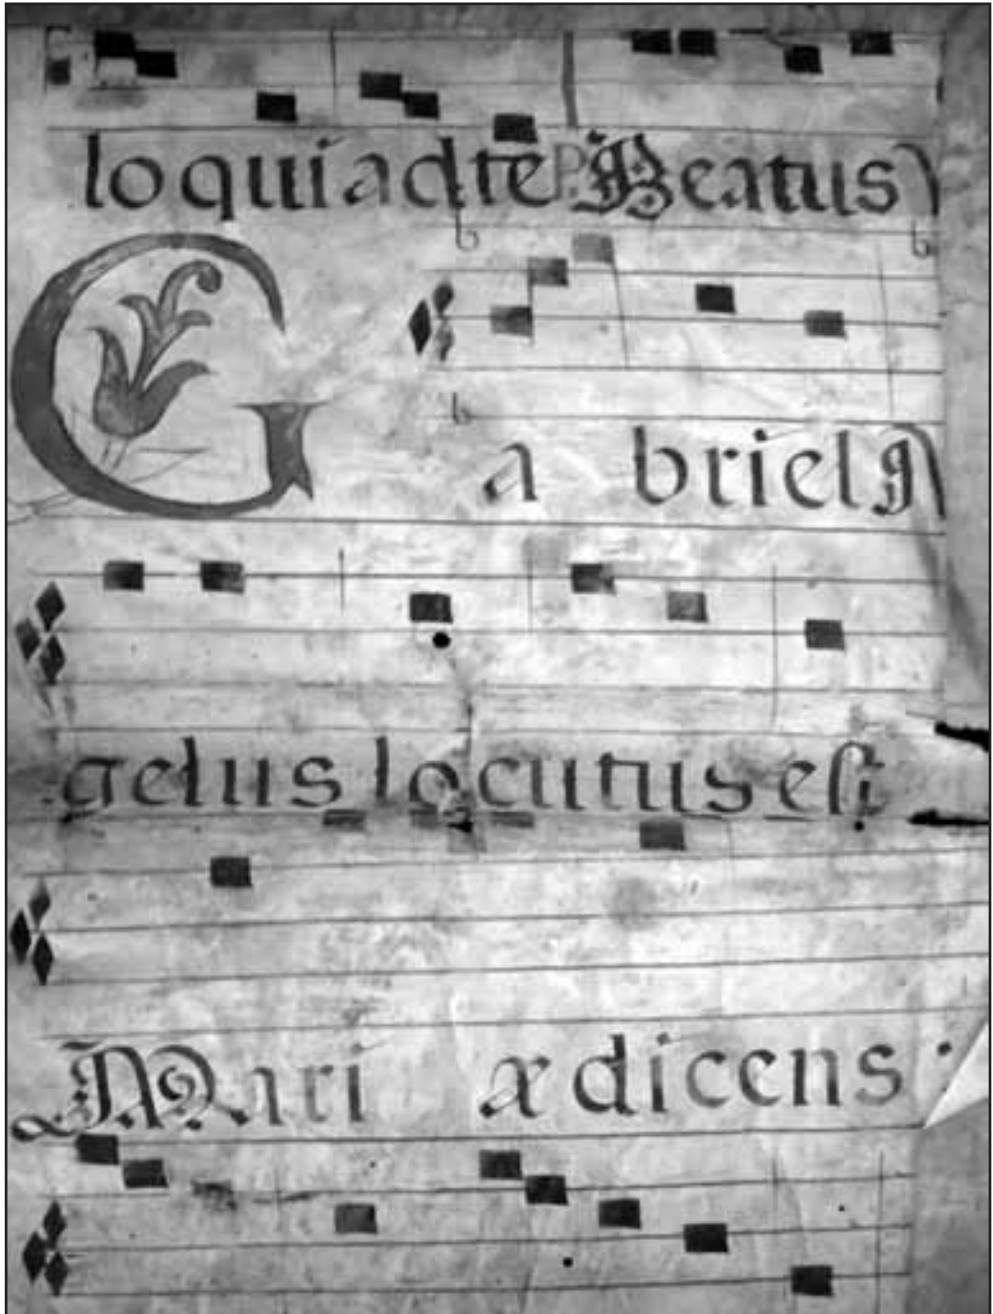 loqui ad te P. Beatus
Gabriel
gelus locutus est
Mariæ dicens